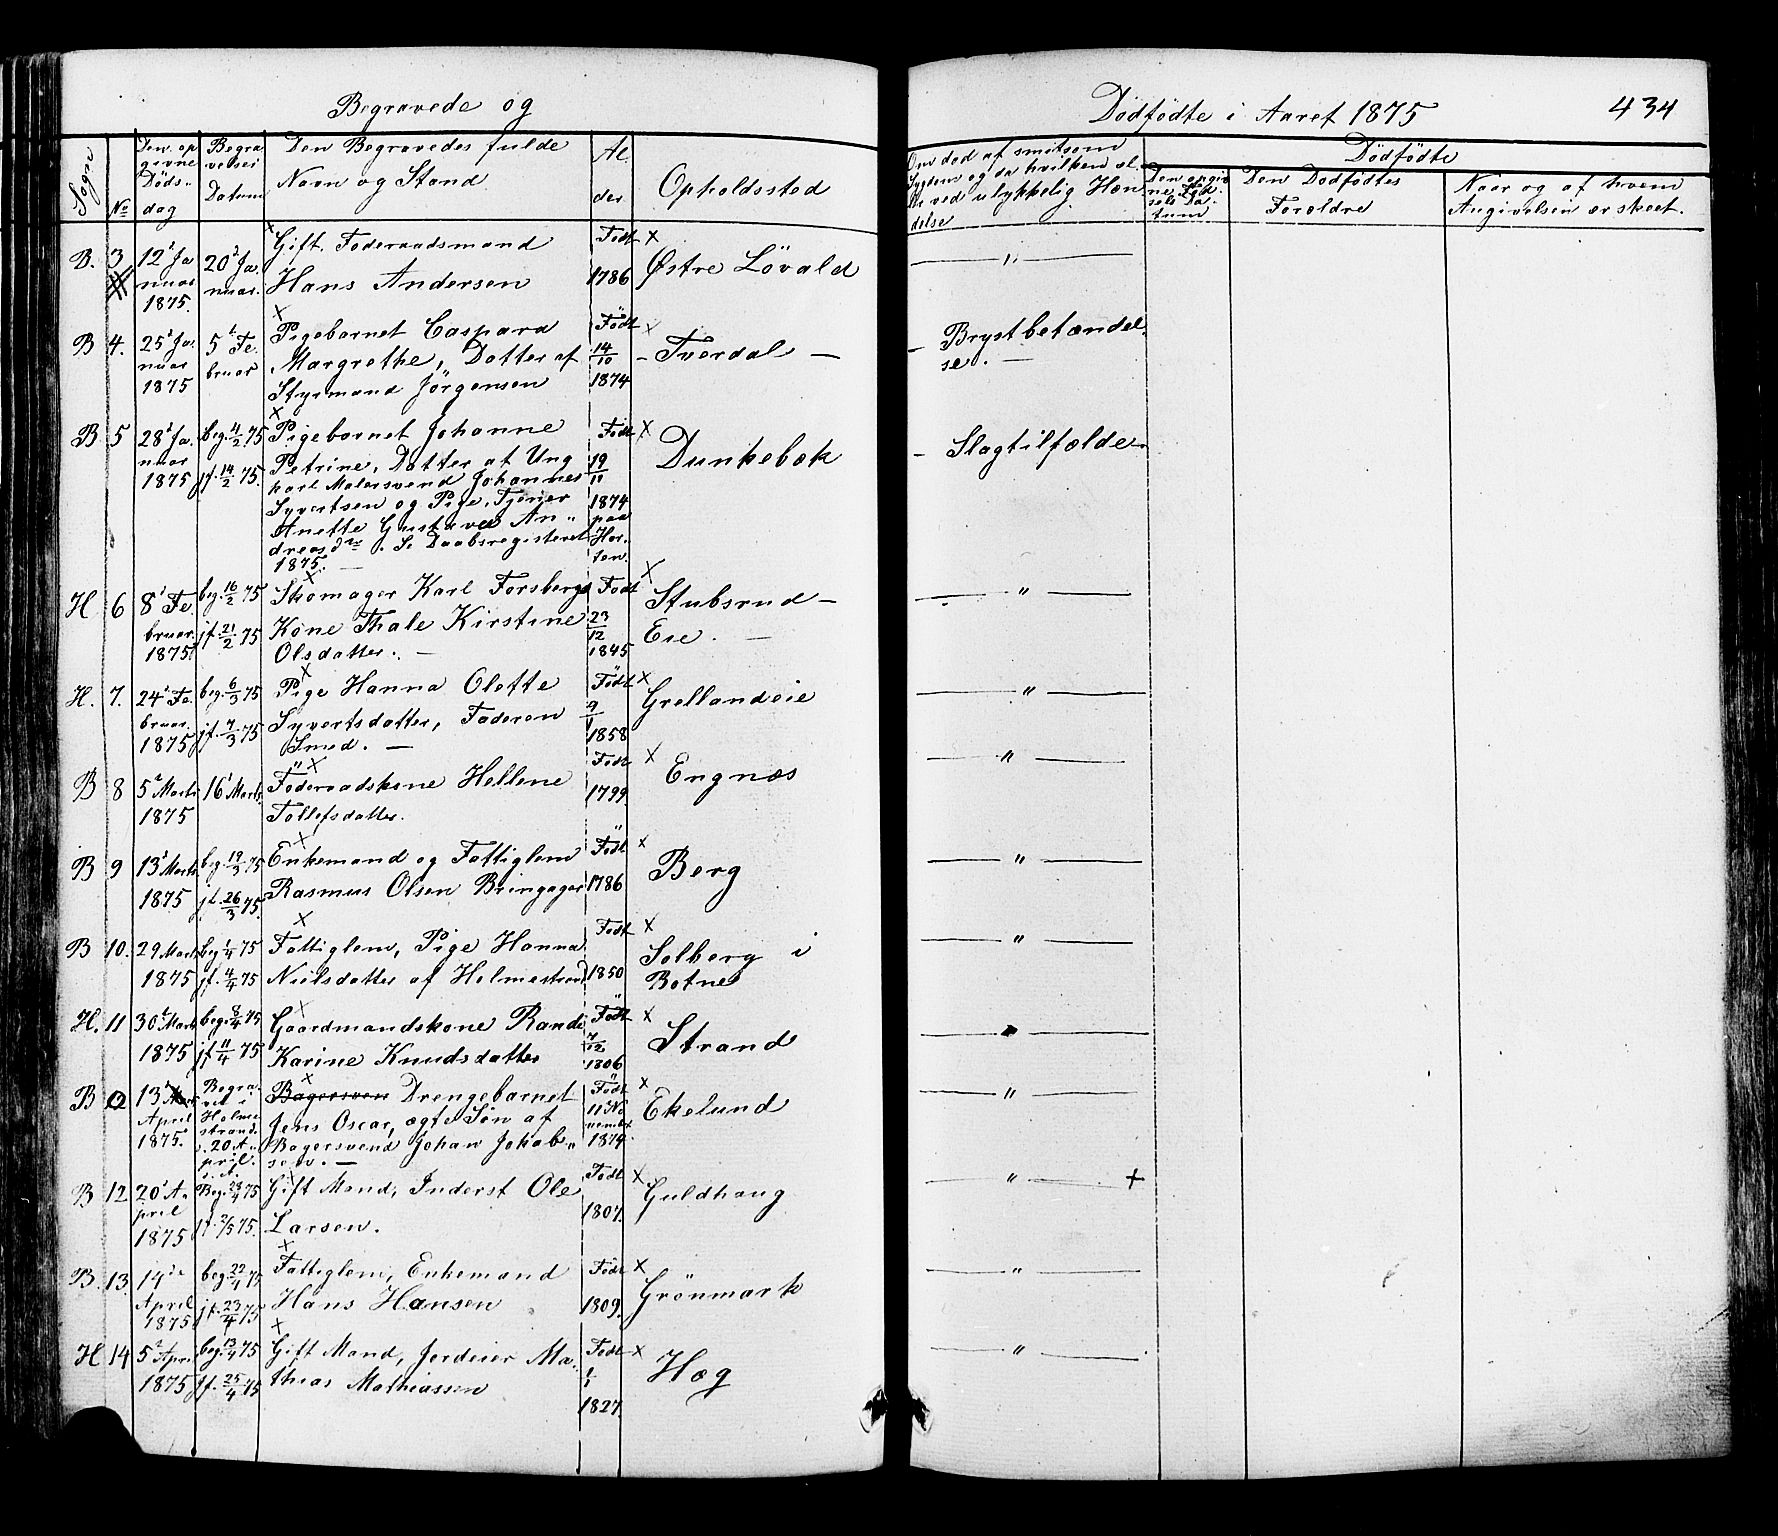 Begravede og
Dödfödte i Aaret 1875
434
Sogn
No
Den op
givne
Döds-
dag
Begra
velses
Datum
Den Begravedes fulde
Navn og Stand
Al
der
Opholdssted
Om död af smitsom
Sygdom og da hvilken el.
ler ved ulykkelig Hæn
delse
Dödfödte
Den opgiv
ne Föd
sels Da
tum
Den Dödfödtes
Foreldre
Naar og af hvem
Angivelsen er skeet.
B. 3
12' Ja
nuar
1875.
20' Ja.
nuar.
Gift. Föderaadsmand
Hans Andersen
Födt
1786
Østre Lövald
B 4.
25' Ja.
nuar
1875
5' Fe.
bruar
Pigebarnet Caspara
Margrethe, Datter af
Styrmand Jörgensen
Födt
14/10
1874
- Tverdal -
- Brystbetændel.
se. -
B 5
28' Ja.
nuar
1875
beg. 4/2 75
jf. 14/2 75.
Pigebarnet Johanne
Petrine, Datter af Ung
karl Malersvend Johannes
Syvertsen og Pige, Tjener
Anette Gustava An„
dreasdtr. Se Daabsregisteret
1875. -
Födt
19/11
1874
paa
Hor.
ten.
Dunkebek
- Slagtilfælde
H 6
8' Fe.
bruar.
1875.
beg. 16/2 75
jf. 21/2 75
Skomager Karl Forsbergs
Kone Thale Kirstine
Olsdatter. -
Födt
23/12
1845
Stubsrud -
Eie. -
H. 7.
24' Fe.
bruar.
1875
beg. 6/3 75
jf. 7/3 75
Pige Hanna Olette
Syvertsdatter, Faderen
Smed. -
Födt
9/1
1858
Grellandeie
B 8
5' Marts
1875
16' Marts.
Föderaadskone Hellene
Tollefsdatter.
Födt
1799.
Engnæs
B 9
13' Marts
1875
beg. 19/3 75
jf. 26/3 75.
Enkemand og Fattiglem
Rasmus Olsen Bringager
Födt
1786
Berg
B 10.
29 Marts
1875
beg 1/4 75
jf. 4/4 75
Fattiglem, Pige Hanna
Nielsdatter af Holmestrand
Födt
1850
Solberg i
Botne
H. 11
30' Marts
1875
beg. 8/4 75
jf 11/4 75
Gaardmandskone Randi
Karine Knudsdatter
Födt
7/12
1806
Strand
B
13'
April
1875.
Begra-
vet i
Holme
strand.
20 A„
pril.
Bagersven Drengebarnet
Jens Oscar, ægte Sön af
Bagersvend Johan Jakob„
sen. -
Födt
11' No
vember
1874.
Ekelund
B 12
20' A„
pril
1875
Beg. 23/4 75
jf. 2/5 75.
Gift Mand, Inderst Ole
Larsen.
Födt
1807.
Guldhaug
B. 13.
14de
April
1875
beg. 22/4 75
jf. 23/4 75
Fattiglem, Enkemand
Hans Hansen
Födt
1809.
Grönmark
H 14
5' April
1875
beg. 13/4 75
jf. 25/4 75
Gift Mand, Jordeier Ma„
thias Mathiassen
Födt
1827.
Hæg